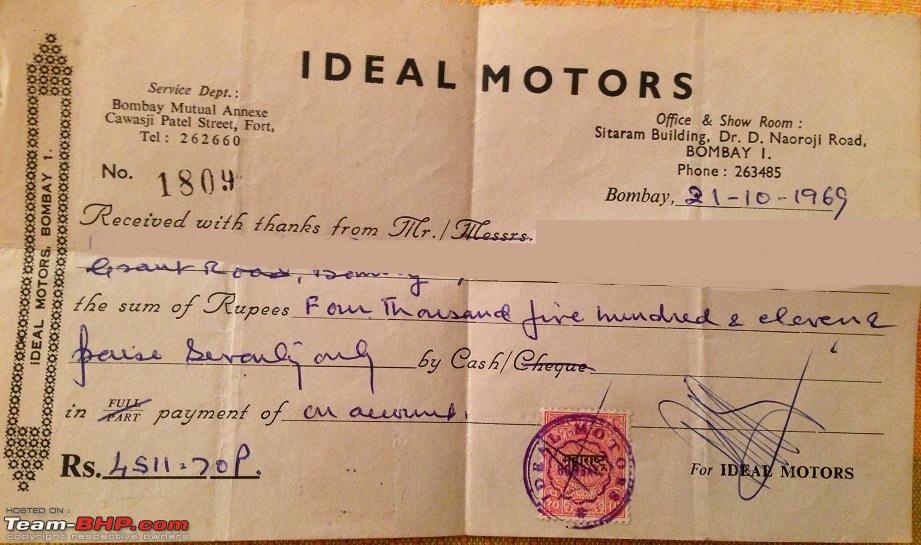 IDEAL MOTORS
Service Dept.:
Bombay Mutual Annexe
Cawasji Patel Street, Fort,
Tel: 262660
Office & Show Room:
Sitaram Building, Dr. D. Naoroji Road,
BOMBAY 1.
Phone: 263485
No. 1809
Bombay, 21-10-1969
Received with thanks from Mr./Messrs.
Grant Road, Bombay,
the sum of Rupees Four Thousand five hundred & eleven &
paise Seventy only by Cash/Cheque
in FULL/PART payment of on account.
Rs. 4511=70P.
For IDEAL MOTORS
IDEAL MOTORS
महाराष्ट्र
IDEAL MOTORS, BOMBAY 1.
HOSTED ON :
Team-BHP.com
copyright respective owners